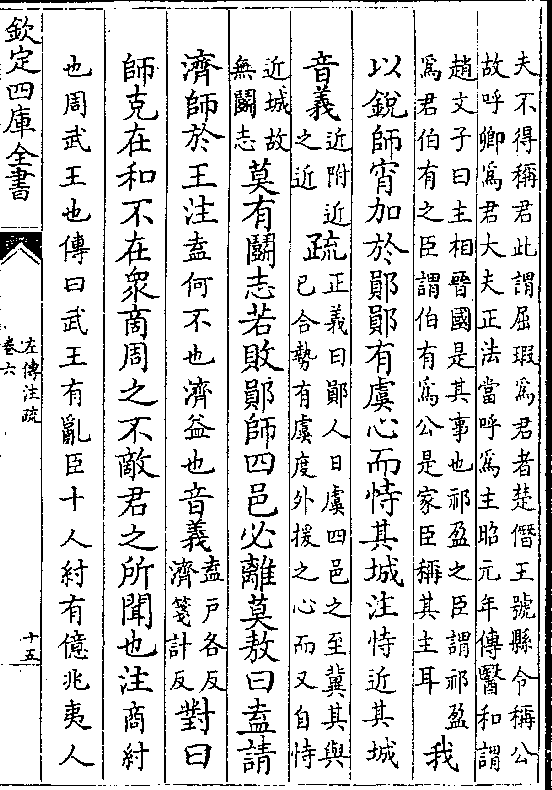 夫不得稱君此謂屈瑕爲君者楚僭王號縣令稱公
故呼卿爲君大夫正法當呼爲主昭元年傳醫和謂
趙文子曰主相晉國是其事也祁盈之臣謂祁盈
爲君伯有之臣謂伯有爲公是家臣稱其主耳
我
以銳師宵加於鄖鄖有虞心而恃其城注恃近其城
音義
近附近
之近
疏
正義曰鄖人日虞四邑之至冀其與
已合勢有虞度外援之心而又自恃
近城故
無鬬志
莫有鬬志若敗鄖師四邑必離莫敖曰盍請
濟師於王注盍何不也濟益也音義
盍戸各反
濟箋計反
對曰
師克在和不在衆商周之不敵君之所聞也注商紂
也周武王也傳曰武王有亂臣十人紂有億兆夷人
欽定四庫全書
左傳注疏
卷六
十五